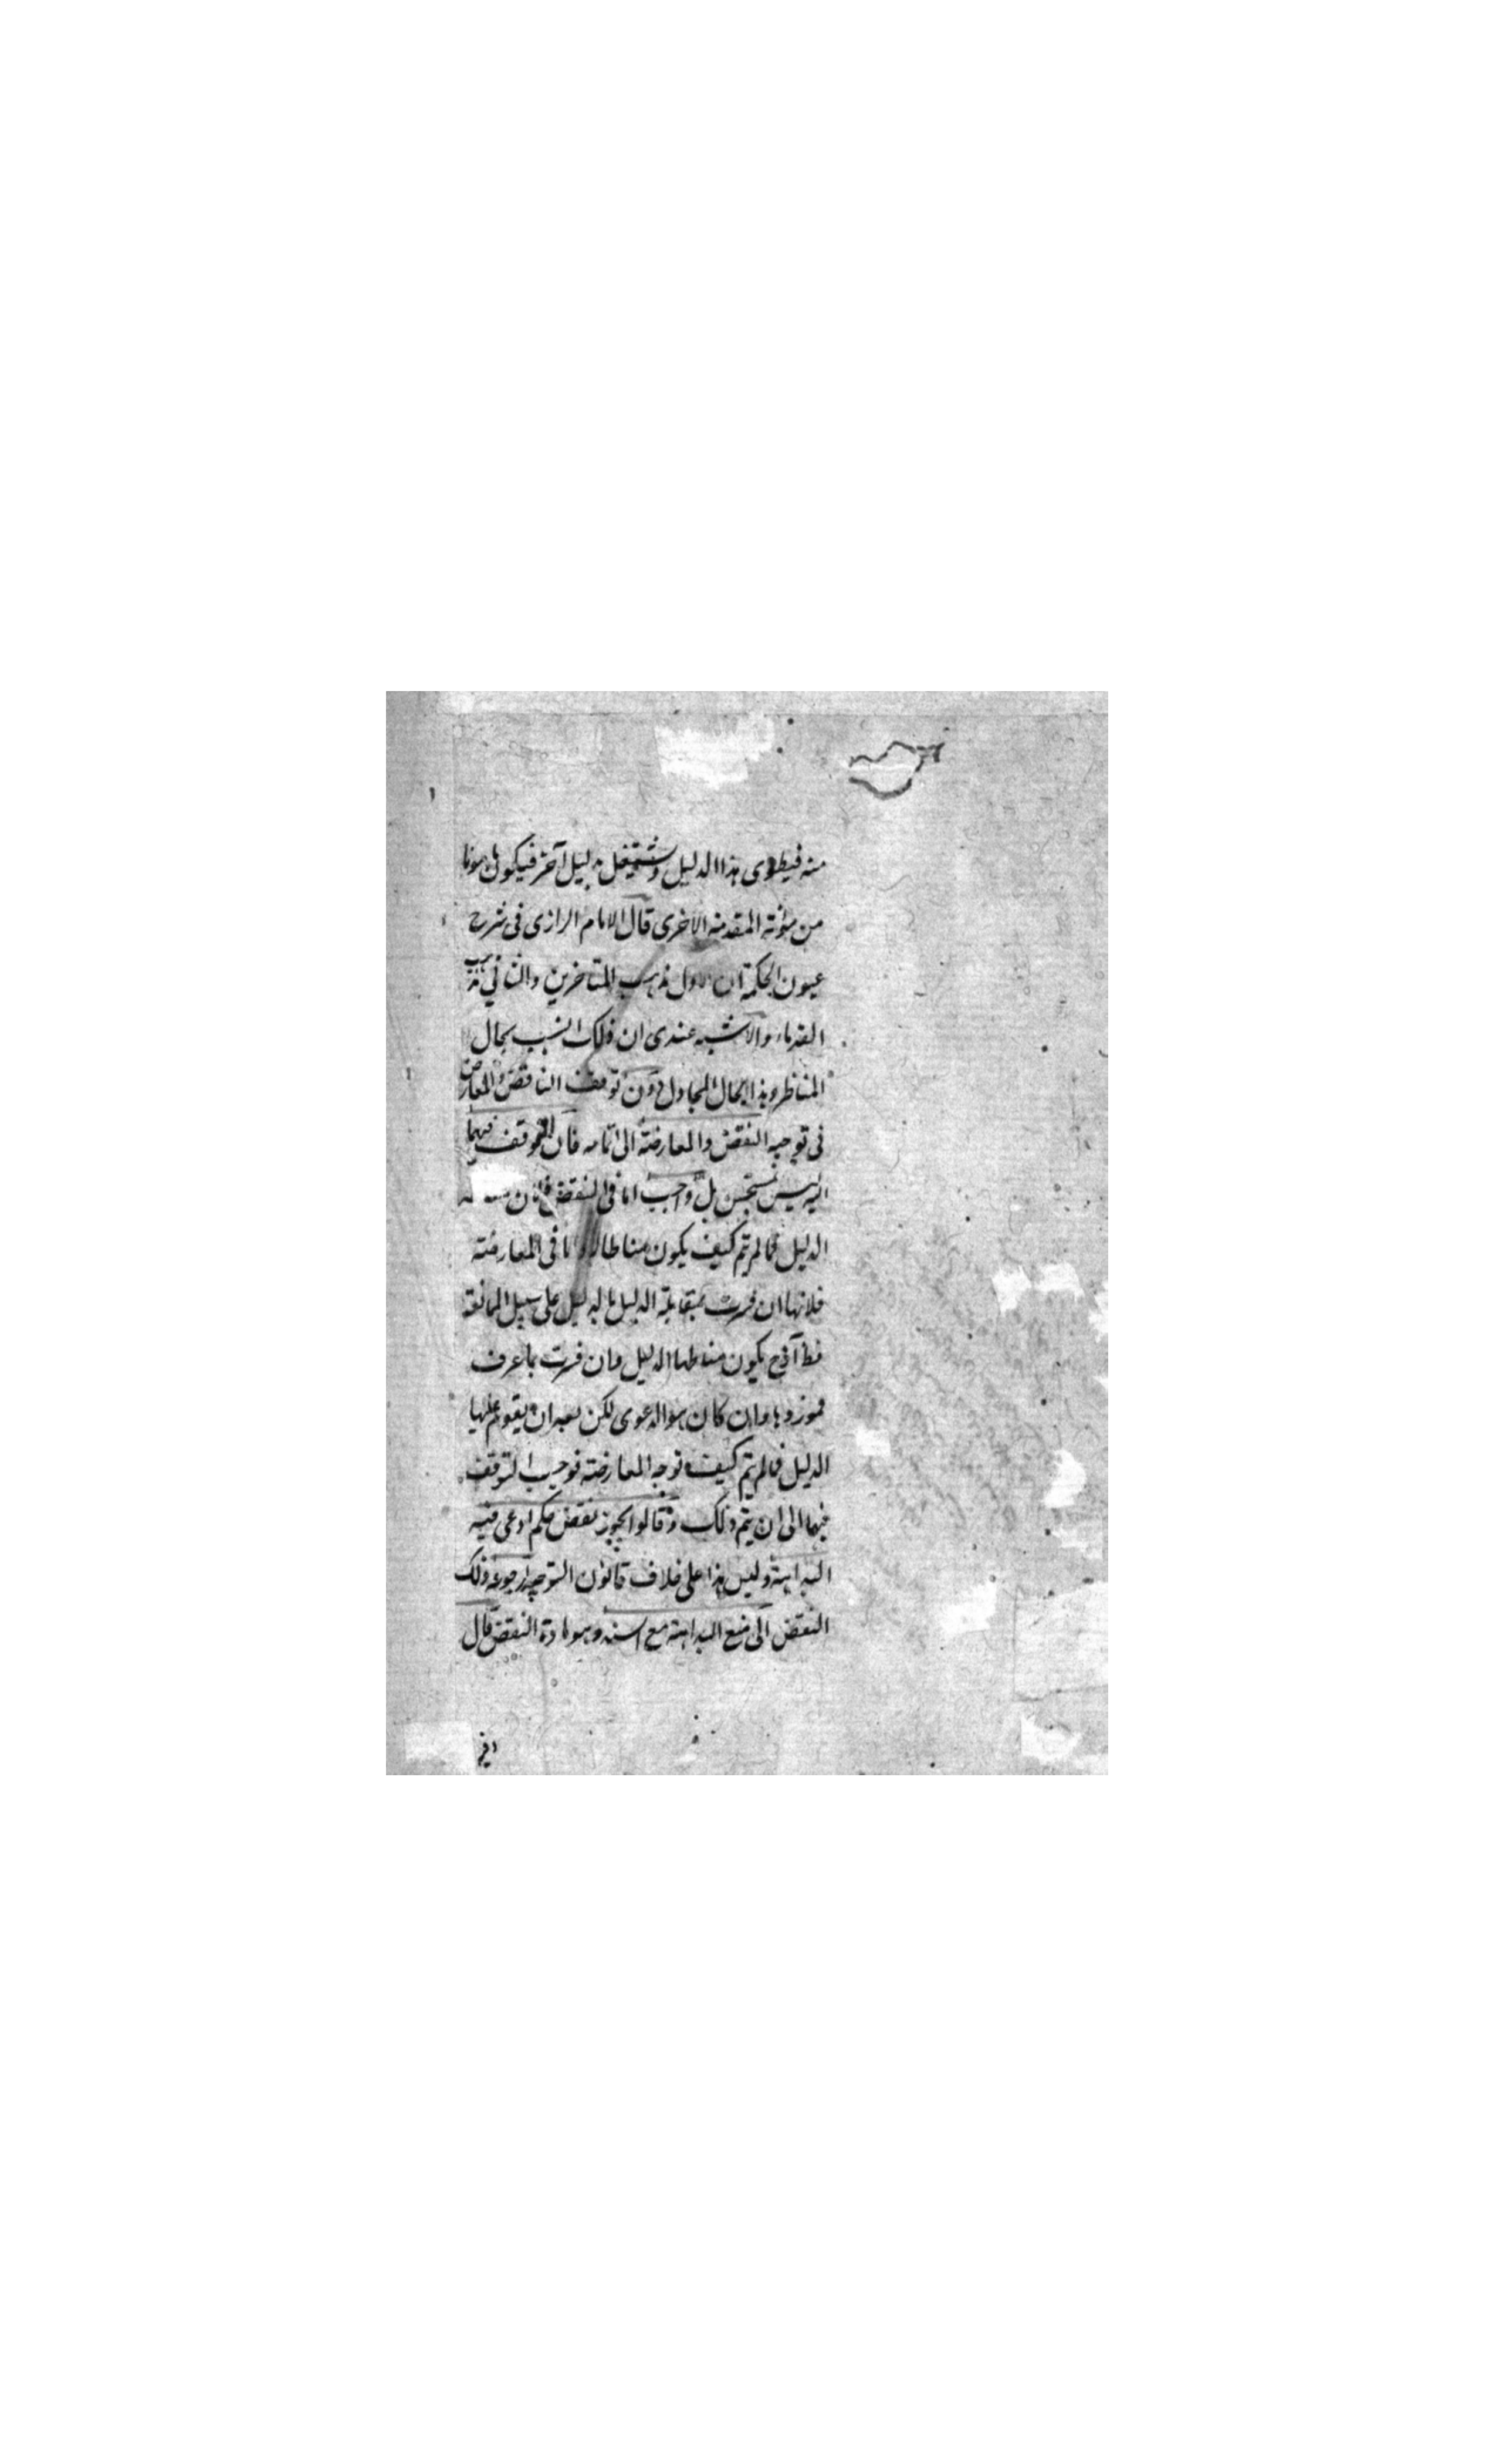 منه فيطوى هذا الدليل ويشتغل بدليل آخر فيكون مصونا
من مؤنة المقدمة الاخرى قال الامام الرازى فى شرح
عيون الحكمة ان الاول مذهب المتاخرين والثاني مذهب
القدماء والاشبه عندى ان ذلك انسب بحال
المناظر وهذا بحال المجادل دون توقف الناقض والمعارض
فى توجيه النقض والمعارضة الى اتمامه فان التوقف فيهما
اليه ليس بمستحسن بل واجب اما فى النقض فلان
الدليل فما لم يتم كيف يكون مناطا له واما فى المعارضة
فلانها ان فسرت بمقابلة الدليل بالدليل على سبيل الممانعة
فظ اذ ح يكون مناطها الدليل وان فسرت بما عرف
فموردها وان كان هو الدعوى لكن بعد ان يقوم عليها
الدليل فما لم يتم كيف توجه المعارضة فوجب التوقف
فيها الى ان يتم ذلك وقالوا يجوز نقض حكم ادعى فيه
البداهة وليس هذا على خلاف قانون التوجيه لرجوعه ذلك
النقض الى منع البداهة مع السند وهو مادة النقض قال